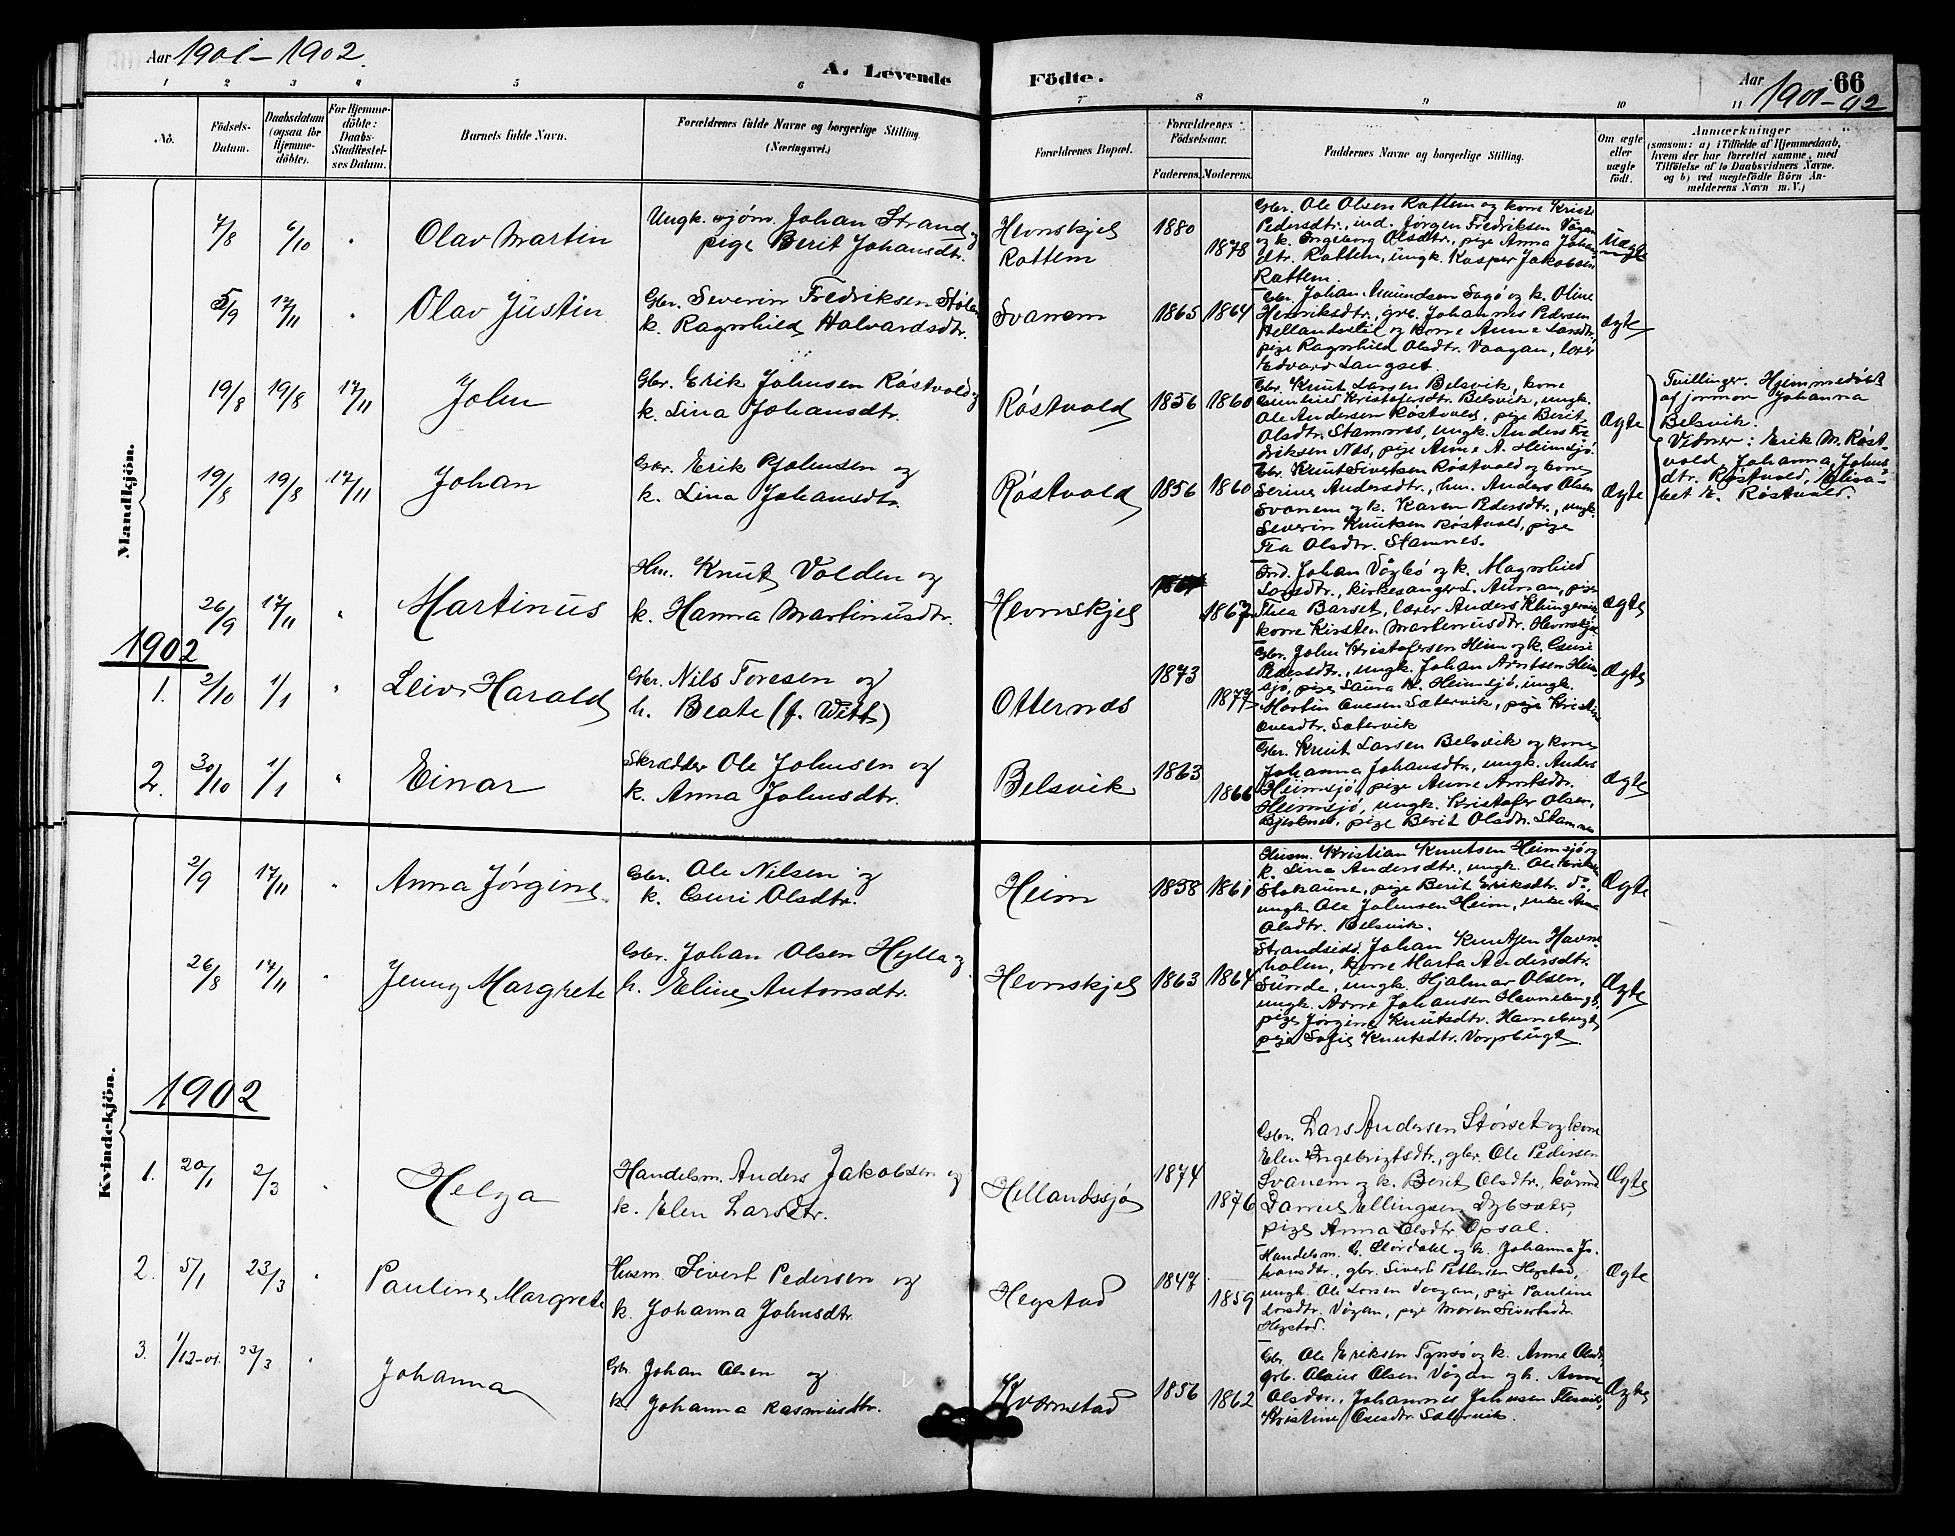 Aar 1901-1902.
A. Levende
Födte.
Aar 1901-02
66
1 2 3 4 5 6 7 8 9 10 11
No.
Födsels-
Datum.
Daabsdatum
(ogsaa for
Hjemme-
döbte).
For Hjemme-
döbte:
Daabs-
Stadfæstel-
ses Datum.
Barnets fulde Navn.
Forældrenes fulde Navne og borgerlige Stilling
(Næringsvei.)
Forældrenes Bopæl.
Forældrenes
Födselsaar.
Faderens.
Moderens.
Faddernes Navne og borgerlige Stilling.
Om ægte
eller
uægte
født.
Anmærkninger
(saasom: a) i Tilfælde af Hjemmedaab,
hvem der har forrettet samme, med
Tilföielse af to Daabsvidners Navne.
og b) ved uægtefödte Börn An-
melderens Navn m. V.)
Mandkjön.
7/8 6/10 Olav Martin
Ungk. sjöm. Johan Strand og
pige Berit Johansdtr.
Hevnskjel
Rottem
1880 1878
Gbr. Ole Olsen Rottem og kone
Pedersdtr., ind. Jørgen Fredriksen Vågan
og k. Ingeborg Olsdtr., pige Anna Johan
dtr. Rottem, ungk. Kasper Jakobsen
Rottem.
Uægte
5/9 17/11 Olav Justin
Gbr. Severin Fredriksen
k. Ragnhild Halvardsdtr.
Svanem
1865 1864
Gbr. Johan Amundsen og k. Oline
Henriksdtr., grb. Johannes Pedersen
og kone Anne Larsdtr.,
pige Ragnhild Olsdtr. Vaagan,
Edvard Langset.
Ægte
19/8 19/8 17/11 John
Gbr. Erik Johnsen Røstvold og
k. Lina Johansdtr.
Røstvold
1856 1860
Gbr. Knut Larsen Belsvik, kone
Kristofersdtr. Belsvik, ungk.
Ole Andersen Røstvold, pige Berit
Olsdtr. Stamnes, ungk. Anders Fre
driksen Næs, pige Anne A. Heimsjö.
Ægte
Tvillinger. Hjemmedøbt
af jormor Johanna
Belsvik.
Vidner: Erik M. Røst
vold, Johanna Johns
dtr. Røstvold, Elisa-
bet E. Røstvold.
19/8 19/8 17/11 Johan
Gbr. Erik Johnsen og
k. Lina Johansdtr.
Røstvold
1856 1860
Gbr. Knut Sivertsen Røstvold og kone
Serine Andersdtr., hm. Anders Olsen
Svanem og k. Karen Pedersdtr., ungk.
Severin Knutsen Røstvold, pige
Olsdtr. Stamnes.
Ægte
26/9 17/11 Martinus
Hm. Knut Volden og
k. Hanna Martinusdtr.
Hevnskjel
1867
Ind. Johan Vågbö og k. Magnhild
Larsdtr., kirkesanger L. Aunan, pige
Thea Barset, lærer Anders
kone Kirsten Martinusdtr. Hevnskjel
Ægte
1902
1. 2/10 1/1 Leiv Harald
Gbr. Nils Toresen og
h. Beate (f. Witt)
Otternes
1873 1877
Gbr. John Kristofersen Heim og k.
Pedersdtr., ungk. Johan Arntsen Heim
sjö, pige Laura K. Heimsjö, ungk.
Martin Ovesen Sætervik, pige Kristine
Ovesdtr. Sætervik
Ægte
2. 30/10 1/1 Einar
Skrædder Ole Johnsen og
k. Anna Johnsdtr.
Belsvik
1863 1866
Gbr. Knut Larsen Belsvik og kone
Johanna Johansdtr., ungk. Anders
Heimsjö, pige Anne Arntsdtr.
Heimsjö, ungk. Kristofer Olsen,
pige Berit Olsdtr. Stamnes
Ægte
Kvindekjön.
2/9 17/11 Anna Jörgine
Gbr. Ole Nilsen og
k. Guri Olsdtr.
Heim
1858 1861
Husm. Kristian Knutsen Heimsjö og
k. Lina Andersdtr., ungk. Ole
pige Berit Eriksdtr. do,
ungk. Ole Johnsen Heim, enke Anna
Olsdtr. Belsvik.
Ægte
26/8 17/11 Jenny Margrete
Gbr. Johan Olsen Hylla og
h. Eline Antonsdtr.
Hevnskjel
1863 1864
Strandsidd. Johan Knutsen Havne
holm, kone Marta Andersdtr.
Sunde, ungk. Hjalmar Olsen,
ungk. Arne Johansen Havnebugt,
pige Jörgine Knutsdtr. Havnebugt,
pige Sofie Knutsdtr.
Ægte
1902
1. 20/1 2/3 Helga
Handelsm. Anders Jakobsen og
k. Elen Larsdtr.
Hellandssjø
1874 1876
Gbr. Lars Andersen Störset og kone
Elen Ingebrigtsdtr., gbr. Ole Pedersen
Svanem og k. Berit Olsdtr.,
Daniel Ellingsen
pige Anna Olsdtr. Opsal.
Ægte
2. 5/1 23/3 Pauline Margrete
Husm. Sivert Pedersen og
k. Johanna Johnsdtr.
Hegstad
1847 1859
Handelsm. og k. Johanna Jo-
hansdtr., gbr. Sivert Pettersen Hegstad,
ungk. Ole Larsen Vaagan, pige Pauline
Larsdtr. Vågan, pige Maren Sivertsdtr.
Hegstad.
Ægte
3. 1/12-01. 23/3 Johanna
Gbr. Johan Olsen og
k. Johanna Rasmusdtr.
Kvernstad
1856 1862
Gbr. Ole Eriksen og k. Anne Olsdtr,
grb. Olaus Olsen Vågan og k. Anne
Olsdtr., Johannes Johnsen
Kristine Ovesdtr. Sætervik.
Ægte